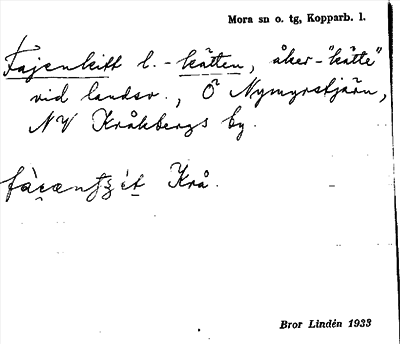 Mora sn o. tg, Kopparb. l.
Fajenkitt l. -kätten, åker-"kätte"
vid landsv., Ö Nymyrstjärn,
NV Kråkbergs by.
Krå.
Bror Lindén 1933